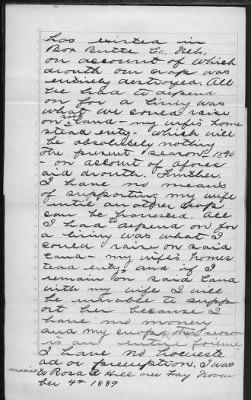 has existed in
Box Butte Co, Neb,
on account of which
drouth our crop was
entirely destroyed. All
we had to depend
on for a living was
what we could raise
on said land - my wifes home
stead enty. Which will
be absolutely nothing
the present season - 1890
- on account of afores
aid drouth. Further.
I have no means
of supporting my wife
until another crop
can be harvested. All
I had to depend on for
a living was what I
could raise on said
land - my wifes homes
tead enty. and if I
remain on said land
with my wife I will
be unable to suppo
ort her because I
have no money
and my crop this season
is an entire failure
I have no homeste
ad or preemption. I was
married to Rosa A Hill nee Fay Novem
ber 4th 1889